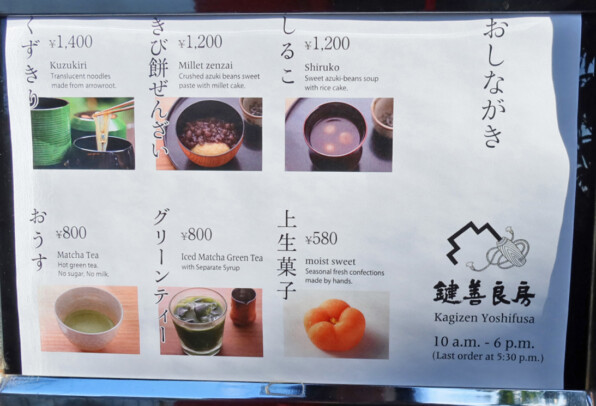 おしながき
くずきり
¥1,400
Kuzukiri
Translucent noodles
made from arrowroot.
きび餅ぜんざい
¥1,200
Millet zenzai
Crushed azuki beans sweet
paste with millet cake.
しるこ
¥1,200
Shiruko
Sweet azuki-beans soup
with rice cake.
おうす
¥800
Matcha Tea
Hot green tea.
No sugar. No milk.
グリーンティー
¥800
Iced Matcha Green Tea
with Separate Syrup
上生菓子
¥580
moist sweet
Seasonal fresh confections
made by hands.
鍵善良房
Kagizen Yoshifusa
10 a.m. - 6 p.m.
(Last order at 5:30 p.m.)